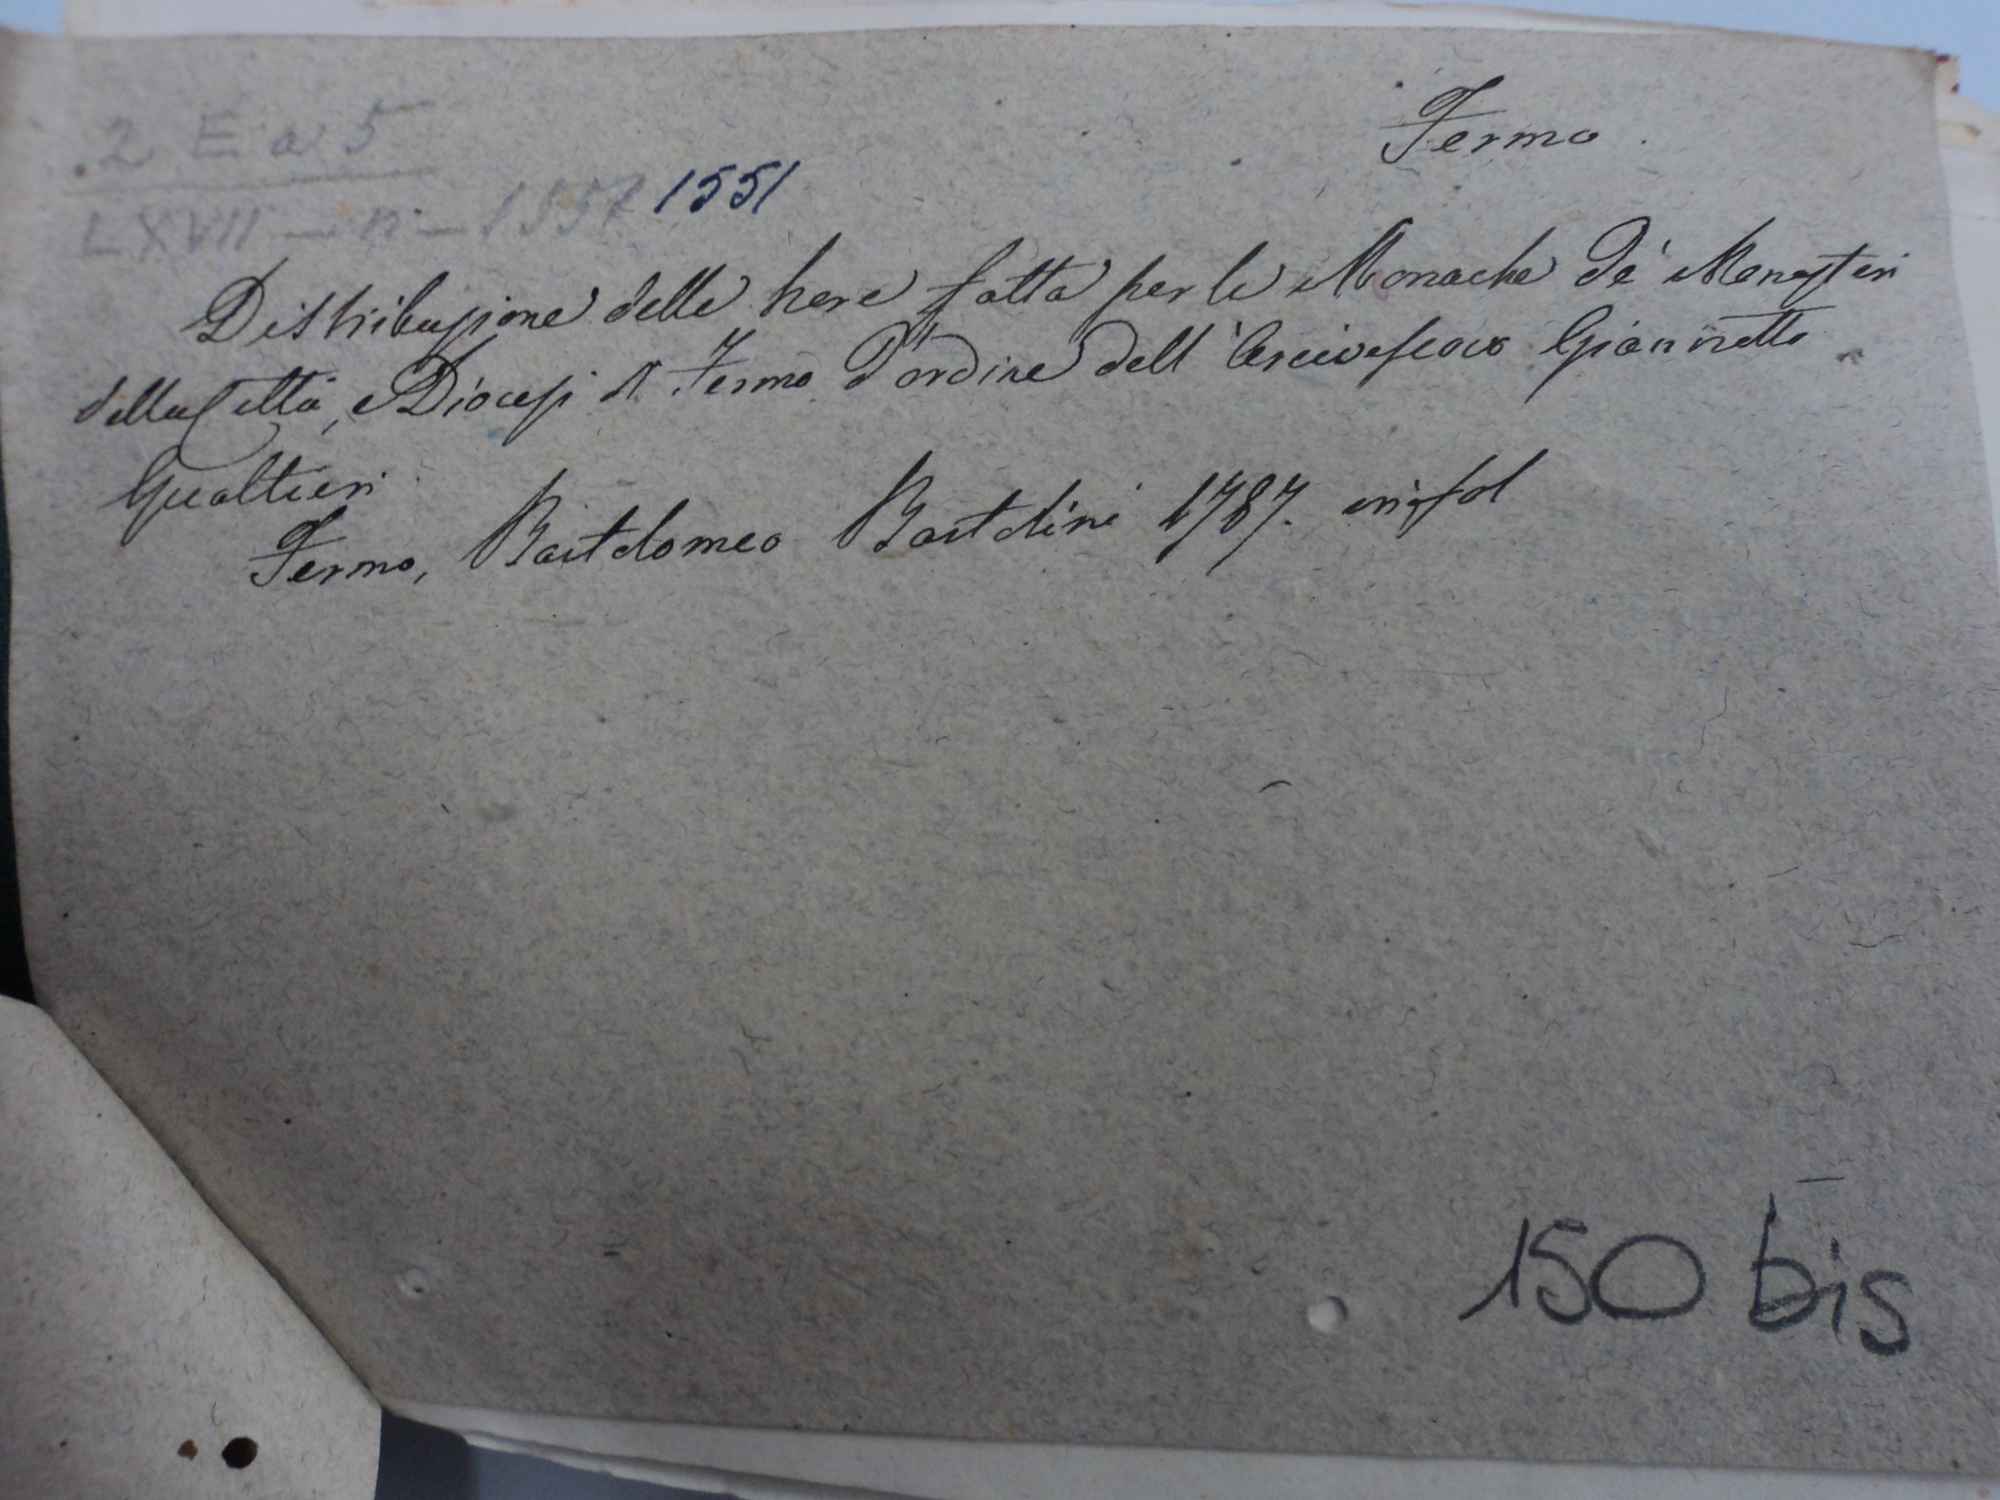 Fermo
2 E a 5
LXVII — n — 1551 1551
Distribuzione delle hore fatta per le Monache de' Monasteri
della Città, e Diocesi di Fermo d'ordine dell' Arcivescovo Giannetto
Gualtieri
Fermo, Bartolomeo Bartolini 1787. in fol
150 bis